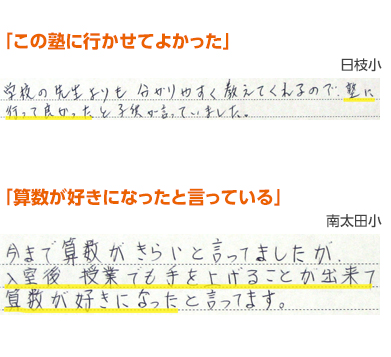 「この塾に行かせてよかった」
日枝小
学校の先生よりも 分かりやすく教えてくれるので、塾に
行って良かったと子供が言っていました。
「算数が好きになったと言っている」
南太田小
今まで算数がきらいと言ってましたが、
入室後、授業でも手を上げることが出来て
算数が好きになったと言ってます。